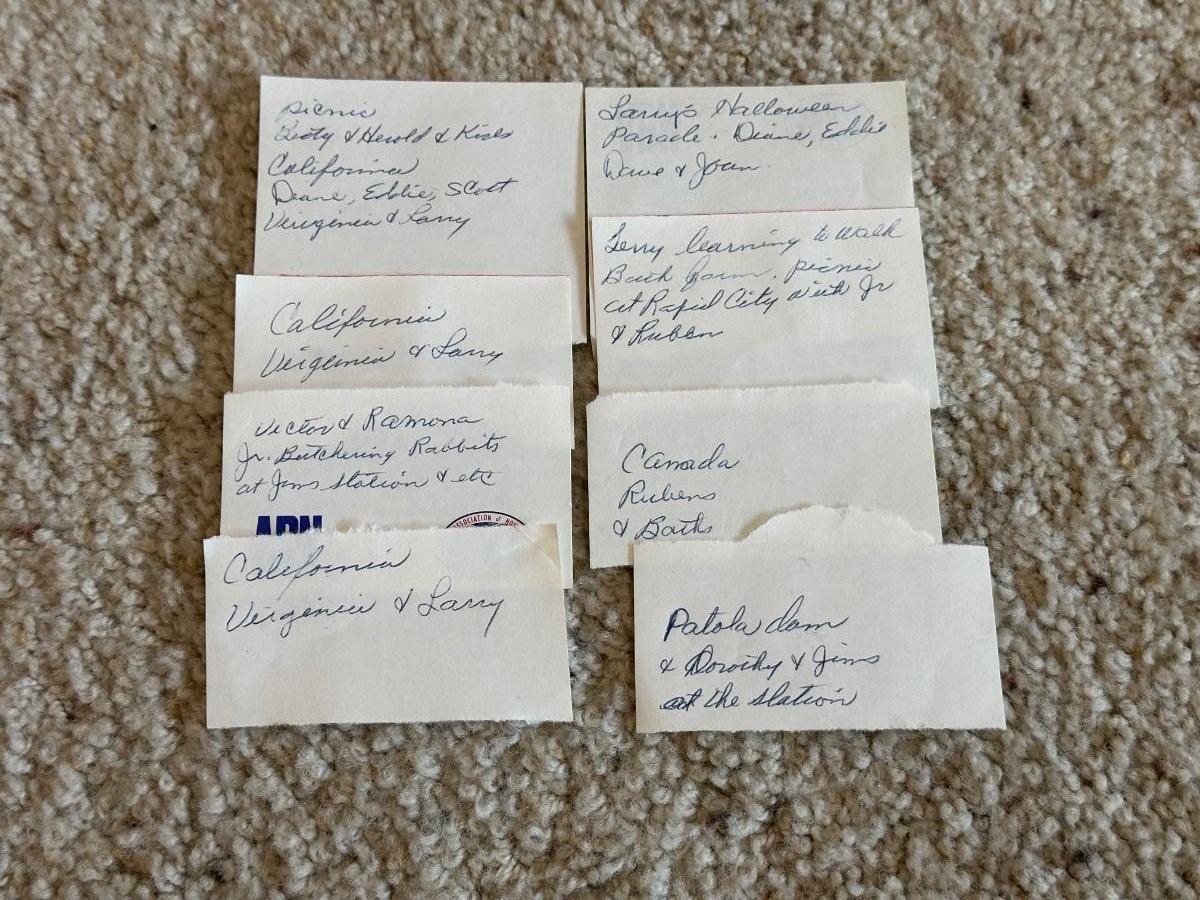 picnic
& Herold & Kids
California
Diane, Eddie, Scott
Virginia & Larry
California
Virginia & Larry
Victor & Ramona
Jr. Butchering Rabbits
at Jims station & etc
ASSOCIATION of
California
Virginia & Larry
Larry's Halloween
Parade. Diane, Eddie
Dave & Joan
learning to walk
Bath farm. picnic
at Rapid City with Jr
& Ruben
Canada
Rubens
& Baths
Patola dam
& Dorothy & Jims
at the station